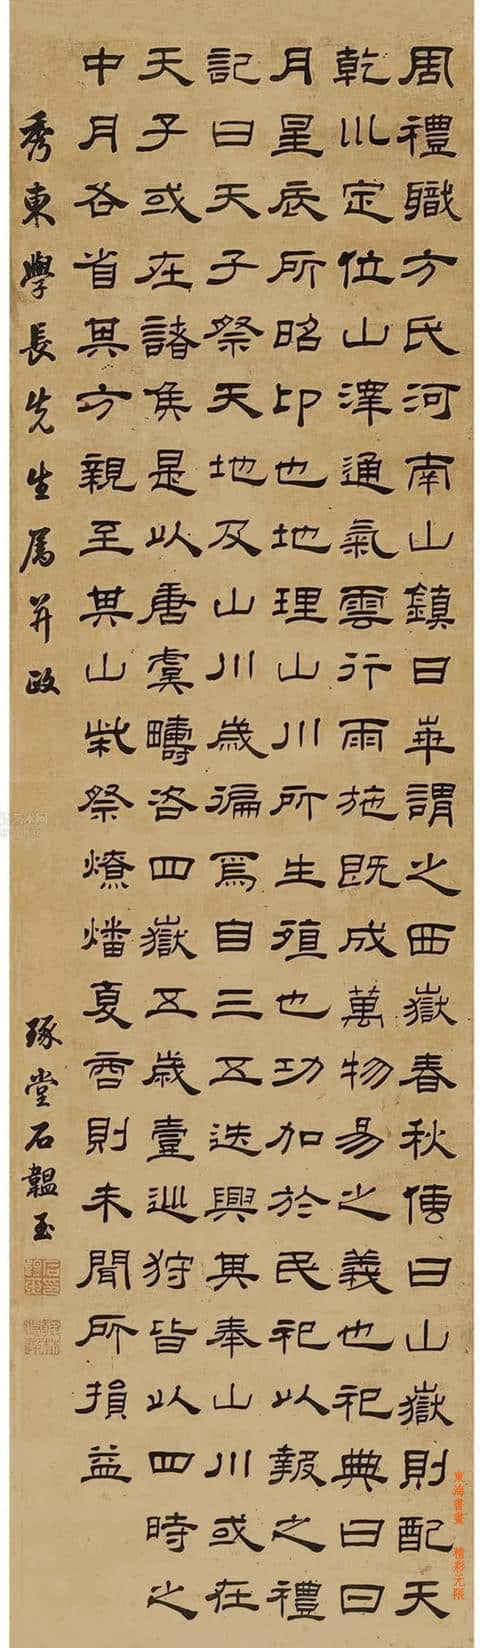 周禮職方氏河南山鎮曰崋謂之西嶽春秋傳曰山嶽則配天
乾川定位山澤通氣雲行雨施既成萬物易之義也祀典曰日
月星辰所昭卬也地理山川所生殖也功加於民祀以報之禮
記曰天子祭天地及山川歲徧焉自三五迭興其奉山川或在
天子或在諸侯是以唐虞疇咨四嶽五歲壹巡狩皆以四時之
中月各省其方親至其山柴祭燎燔夏商則未聞所損益
秀東學長先生屬并政
琢堂石韞玉
東海書畫 精彩无限